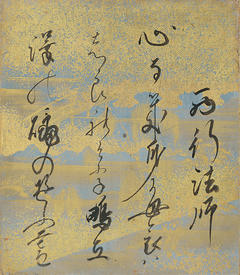 西行法師
心なき身にも哀は
しられけり鴫立
澤の穐の夕暮